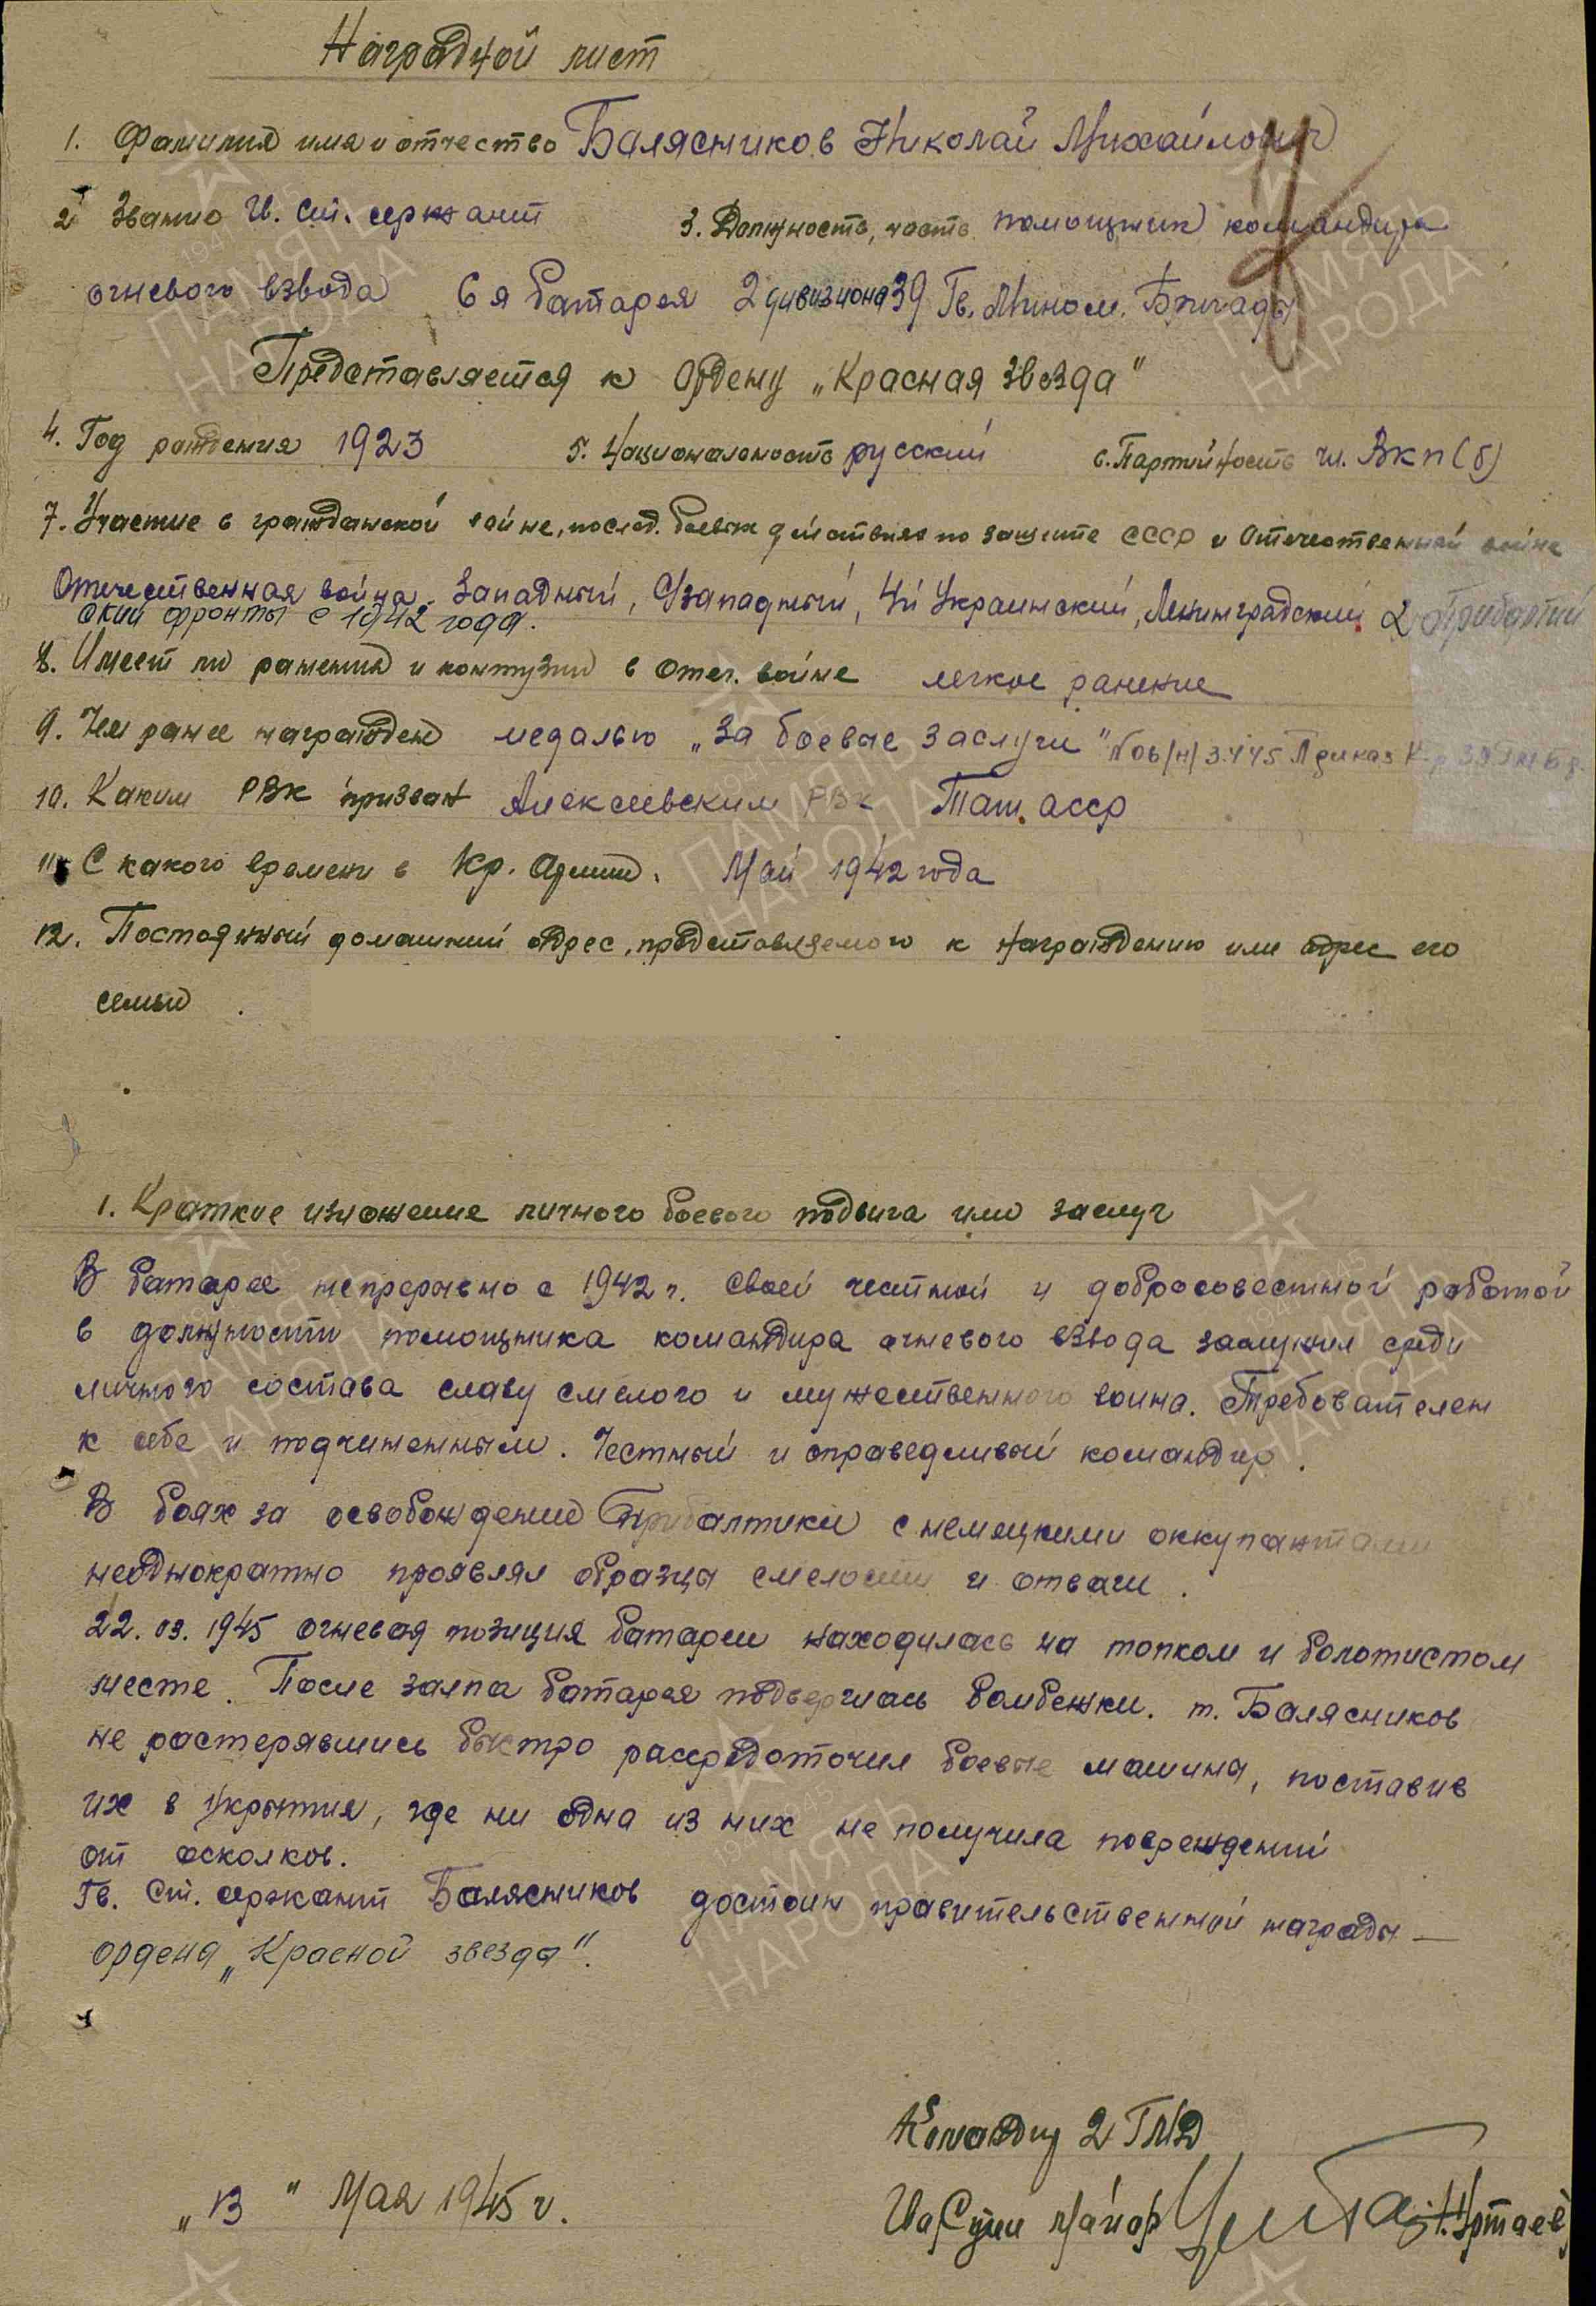 Наградной лист
1. Фамилия имя и отчество Балясников Николай Михайлович
2. Звание Гв. ст. сержант 3. Должность, часть помощник командира
огневого взвода 6я батарея 2 дивизиона 39 Гв. Мином. Бригады
Представляется к Ордену „Красная Звезда“
4. Год рождения 1923 5. Национальность русский 6. Партийность чл. ВКП(б)
7. Участие в гражданской войне, послед. боевых действиях по защите СССР и Отечественной войне
Отечественная война. Западный, С/западный, 4й Украинский, Ленинградский, 2 Прибалтий
ский фронты с 1942 года.
8. Имеет ли ранения и контузии в отеч. войне легкое ранение
9. Чем ранее награжден медалью „За боевые заслуги“ N06/н/ 3.4.45 Приказ К-р 39 Гв МБр.
10. Каким РВК призван Алексеевским РВК Тат. АССР
11. С какого времени в Кр. Армии. Май 1942 года
12. Постоянный домашний адрес, представляемого к награждению или адрес его
семьи .
1. Краткое изложение личного боевого подвига или заслуг
В батарее непрерывно с 1942 г. Своей честной и добросовестной работой
в должности помощника командира огневого взвода заслужил среди
личного состава славу смелого и мужественного воина. Требователен
к себе и подчиненным. Честный и справедливый командир.
В боях за освобождение Прибалтики с немецкими оккупантами
неоднократно проявлял образцы смелости и отваги.
22.03.1945 огневая позиция батареи находилась на топком и болотистом
месте. После залпа батарея подверглась бомбежки. т. Балясников
не растерявшись быстро рассредоточил боевые машины, поставив
их в укрытия, где ни одна из них не получила повреждений
от осколков.
Гв. ст. сержант Балясников достоин правительственной награды —
ордена „Красной звезды“.
Командир 2 ГМД
„13“ Мая 1945 г.
Гвардии майор Уртаев
ПАМЯТЬ
НАРОДА
1941-1945